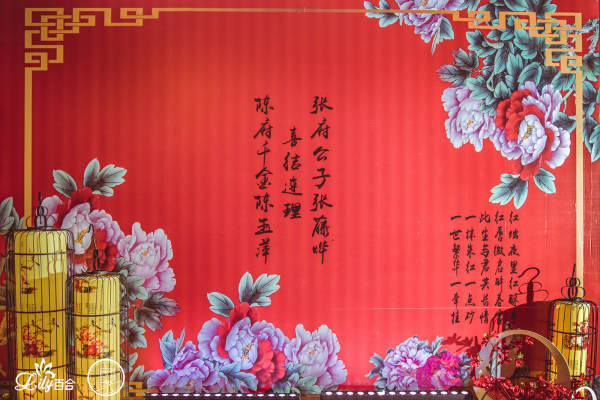 张府公子张巍晔
喜结连理
陈府千金陈玉萍
红烛夜里红酥
红唇微启醉春
此生与君共长情
一抹朱红一点砂
一世繁华一年往
Lily百合